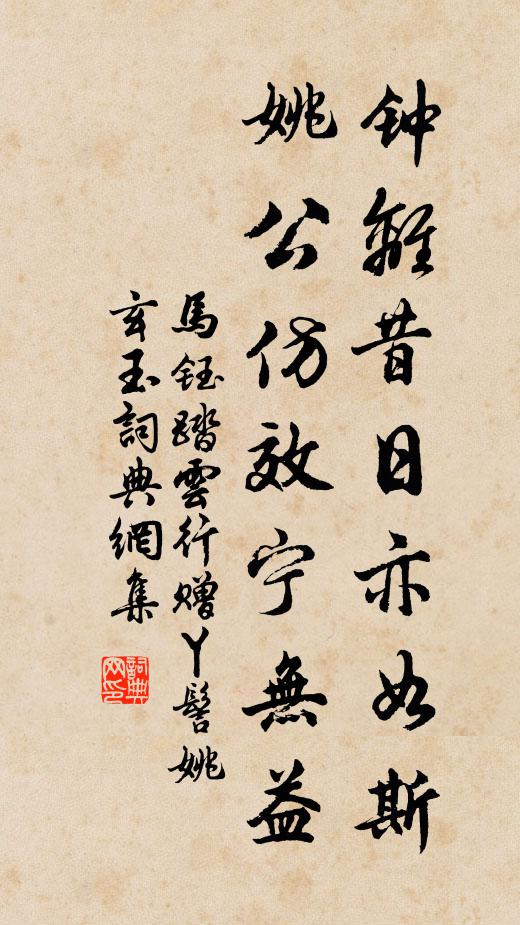 钟離昔日亦如斯
姚公仿效宁無益
馬鈺踏雲行赠丫髻姚
玄玉詞典網集
詞典网印